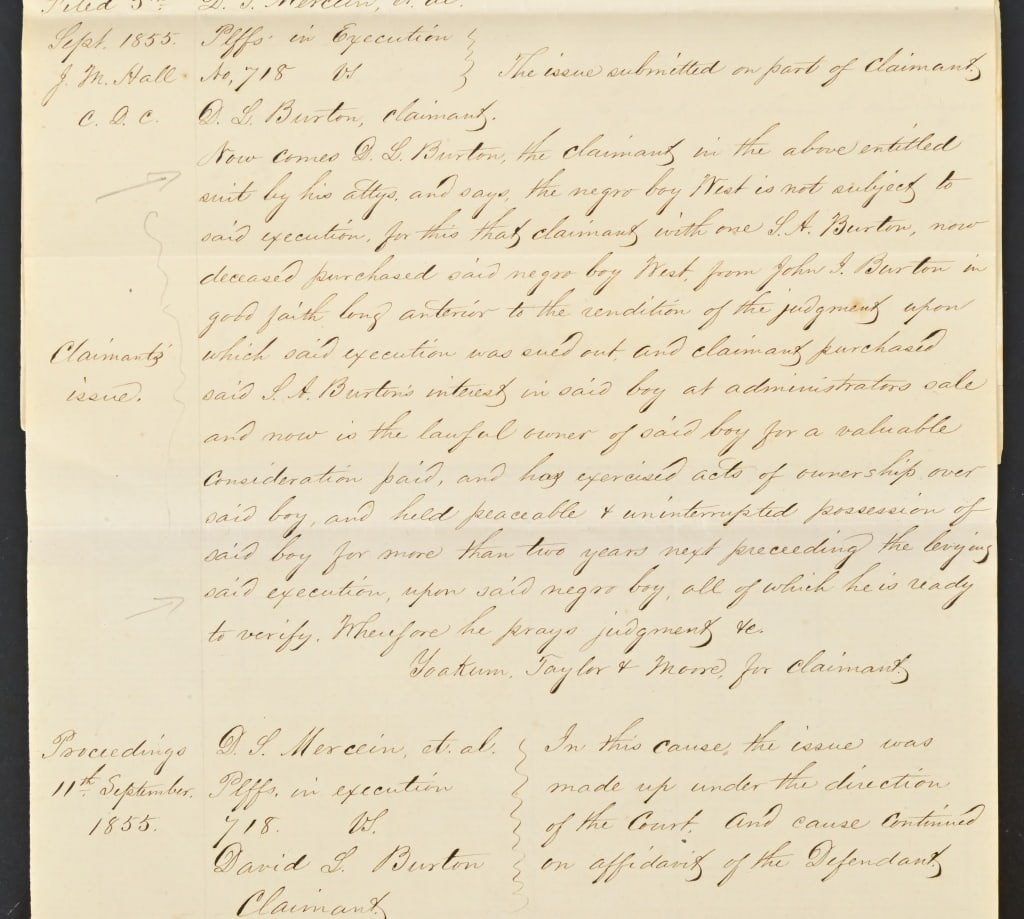 Filed 5th D. S. Mercein, et. al.
Sept. 1855. Plffs in Execution
J. M. Hall No, 718 VS The issue submitted on part of Claimant,
C. D. C. D. L. Burton, claimant.
Now comes D. L. Burton, the claimant in the above entitled
suit by his attys, and says, the negro boy West is not subject to
said execution, for this that claimant with one S. A. Burton, now
deceased purchased said negro boy West, from John I. Burton in
good faith long anterior to the rendition of the judgment upon
Claimants' which said execution was sued out, and claimant purchased
issue. said S. A. Burton's interest in said boy at administrators sale
and now is the lawful owner of said boy for a valuable
consideration paid, and has exercised acts of ownership over
said boy, and held peaceable & uninterrupted possession of
said boy for more than two years next preceeding the levying
said execution, upon said negro boy, all of which he is ready
to verify. Wherefore he prays judgment &c.
Yoakum, Taylor & Moore, for Claimant
Proceedings D. S. Mercein, et. al. In this cause, the issue was
11th September. Plffs. in execution made up under the direction
1855. 718. VS. of the Court. And cause continued
David L. Burton on affidavit of the Defendant,
Claimant